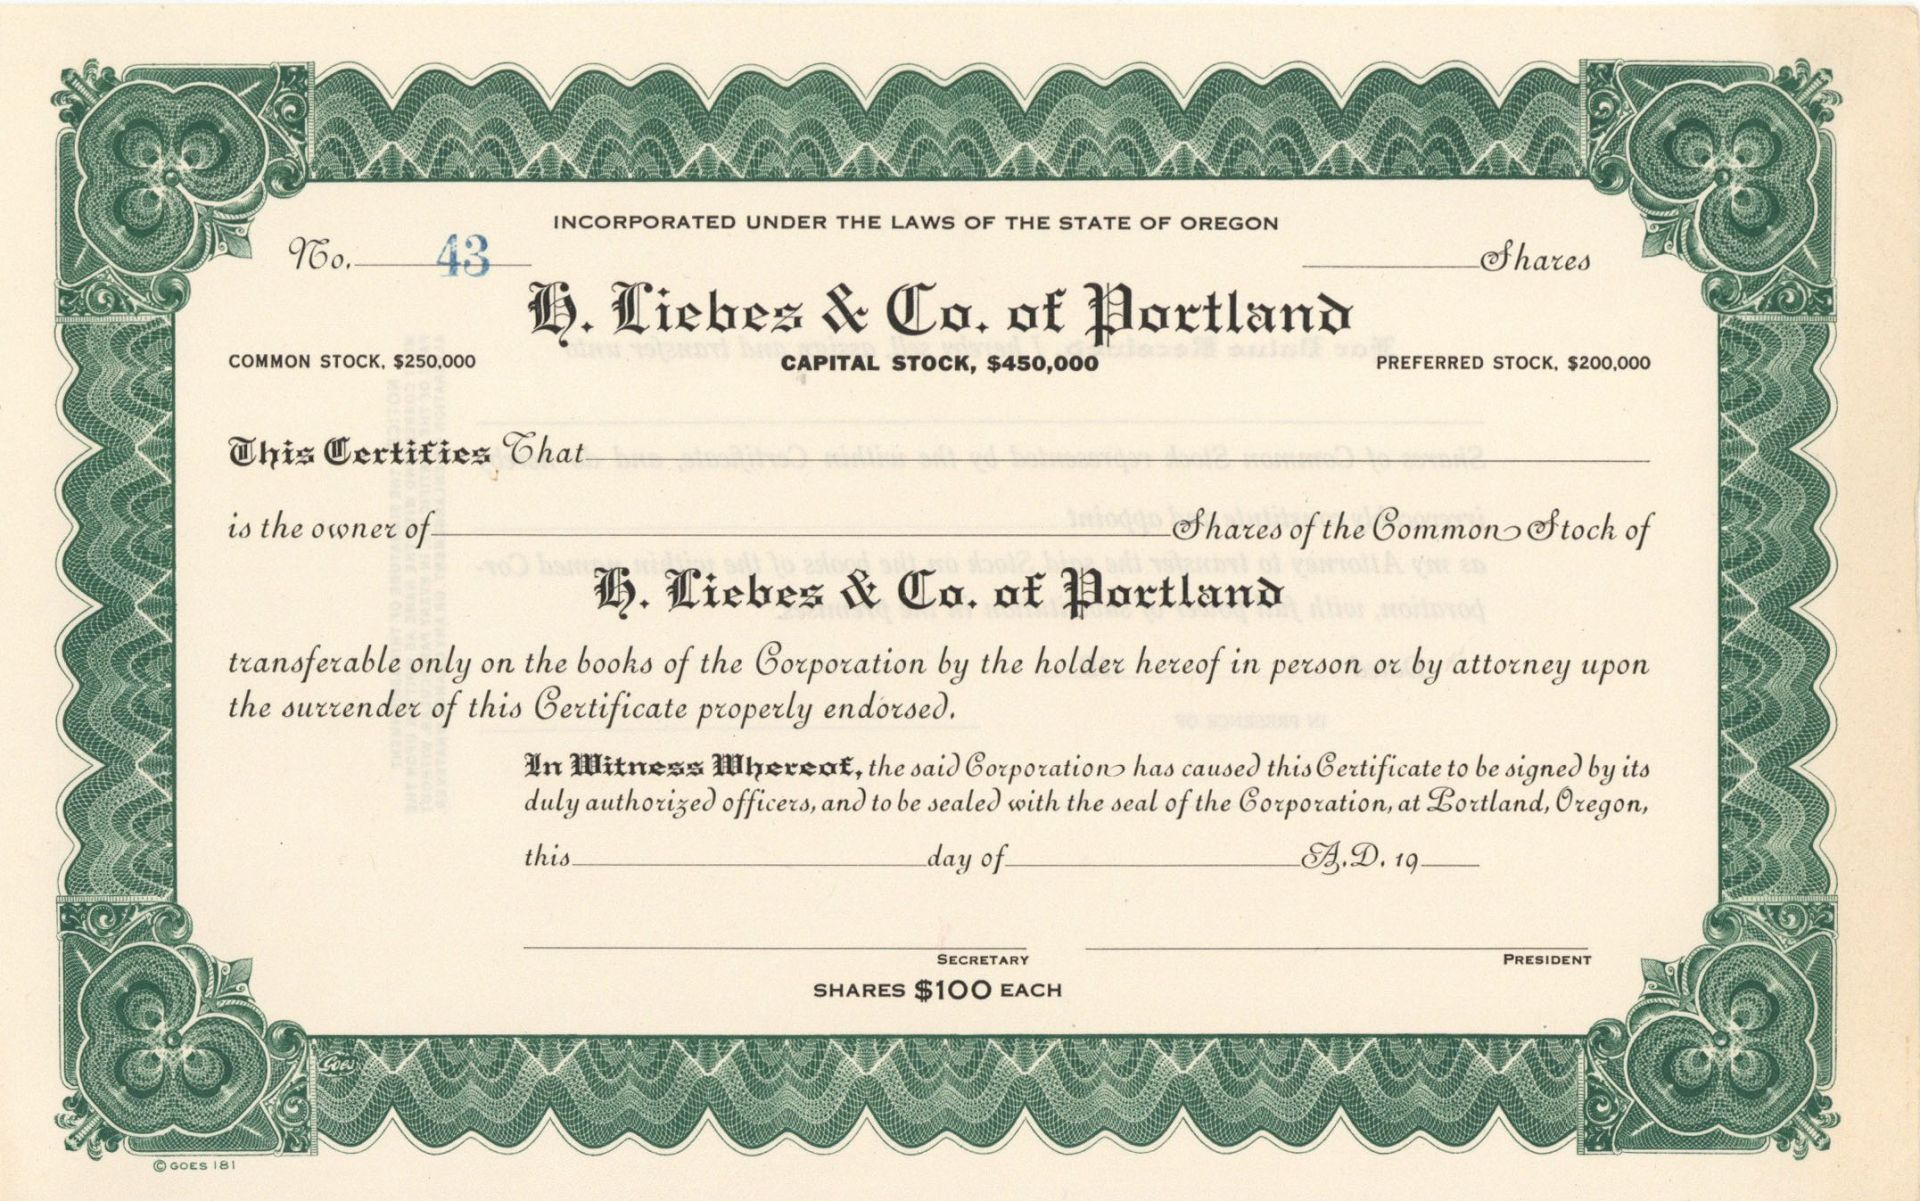 INCORPORATED UNDER THE LAWS OF THE STATE OF OREGON
No. 43 Shares
H. Liebes & Co. of Portland
COMMON STOCK, $250,000 CAPITAL STOCK, $450,000 PREFERRED STOCK, $200,000
This Certifies That
is the owner of Shares of the Common Stock of
H. Liebes & Co. of Portland
transferable only on the books of the Corporation by the holder hereof in person or by attorney upon
the surrender of this Certificate properly endorsed.
In Witness Whereof, the said Corporation has caused this Certificate to be signed by its
duly authorized officers, and to be sealed with the seal of the Corporation, at Portland, Oregon,
this day of A.D. 19
SECRETARY PRESIDENT
SHARES $100 EACH
Goes
© GOES 181